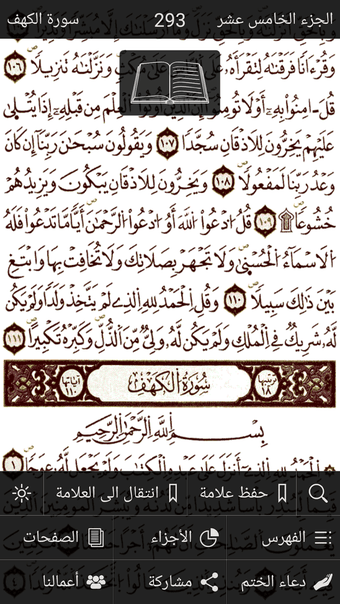 الجزء الخامس عشر 293 سورة الكهف
وَقُرْءَانًا فَرَقْنَٰهُ لِتَقْرَأَهُۥ عَلَى مُكْثٍ وَنَزَّلْنَٰهُ تَنزِيلًا ١٠٦
قُلْ ءَامِنُوا۟ بِهِۦٓ أَوْ لَا تُؤْمِنُوٓا۟ إِنَّ الَّذِينَ أُوتُوا۟ الْعِلْمَ مِن قَبْلِهِۦٓ إِذَا يُتْلَىٰ
عَلَيْهِمْ يَخِرُّونَ لِلْأَذْقَانِ سُجَّدًا ١٠٧ وَيَقُولُونَ سُبْحَٰنَ رَبِّنَآ إِن كَانَ
وَعْدُ رَبِّنَا لَمَفْعُولًا ١٠٨ وَيَخِرُّونَ لِلْأَذْقَانِ يَبْكُونَ وَيَزِيدُهُمْ
خُشُوعًا ۩ ١٠٩ قُلِ ادْعُوا۟ اللَّهَ أَوِ ادْعُوا۟ الرَّحْمَٰنَ أَيًّا مَّا تَدْعُوا۟ فَلَهُ
الْأَسْمَآءُ الْحُسْنَىٰ وَلَا تَجْهَرْ بِصَلَاتِكَ وَلَا تُخَافِتْ بِهَا وَابْتَغِ
بَيْنَ ذَٰلِكَ سَبِيلًا ١١٠ وَقُلِ الْحَمْدُ لِلَّهِ الَّذِى لَمْ يَتَّخِذْ وَلَدًا وَلَمْ يَكُن
لَّهُۥ شَرِيكٌ فِى الْمُلْكِ وَلَمْ يَكُن لَّهُۥ وَلِىٌّ مِّنَ الذُّلِّ وَكَبِّرْهُ تَكْبِيرًا ١١١
ترتيبها ١٨ سُورَةُ الْكَهْفِ آياتها ١١٠
بِسْمِ اللَّهِ الرَّحْمَٰنِ الرَّحِيمِ
الْحَمْدُ لِلَّهِ الَّذِى أَنزَلَ عَلَىٰ عَبْدِهِ الْكِتَٰبَ وَلَمْ يَجْعَل لَّهُۥ عِوَجَا ١
حفظ علامة انتقال الى العلامة
الفهرس الأجزاء الصفحات
دعاء الختم مشاركة أعمالنا